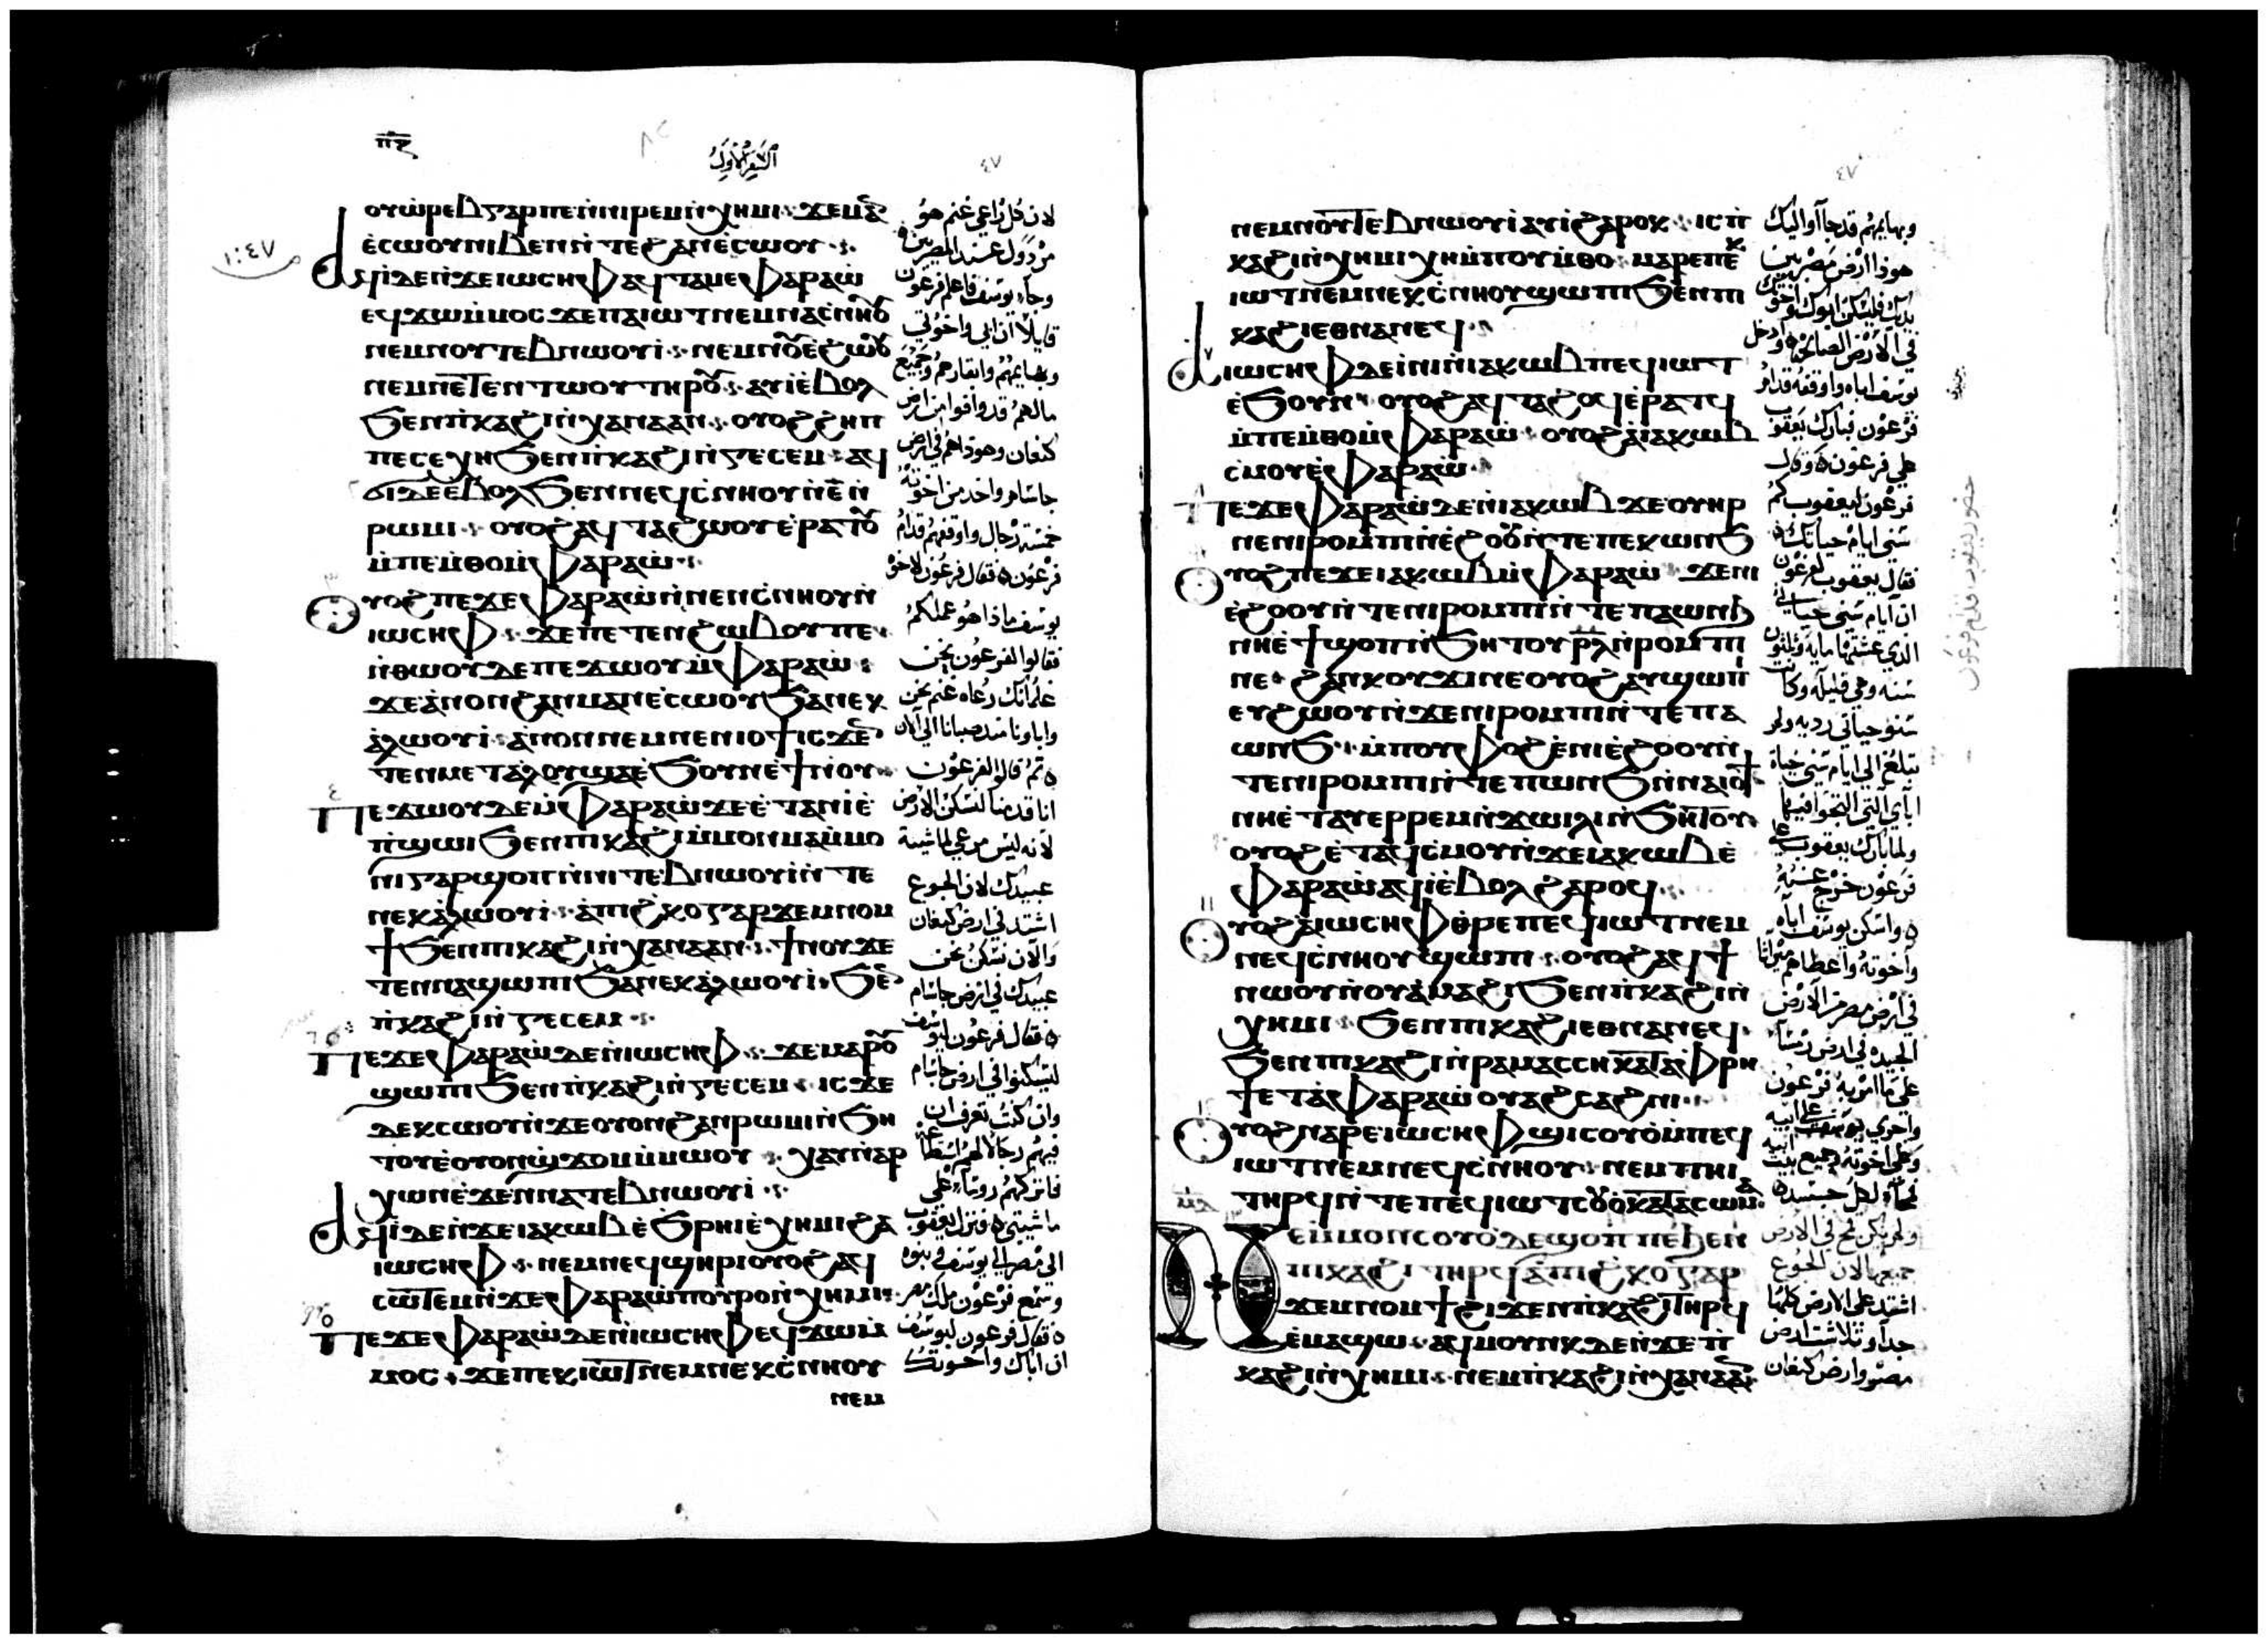 السفر الاول
٤٧
ⲟⲩⲱⲣⲉⲃ ⲅⲁⲣ ⲡⲉ ⲛ̀ⲛⲓⲣⲉⲙⲛ̀ⲭⲏⲙⲓ
ⲉ̀ⲥⲱⲟⲩ ⲛⲓⲃⲉⲛ ⲛ̀ⲧⲉ ϩⲁⲛⲉ̀ⲥⲱⲟⲩ
ⲁϥⲓ̀ ⲇⲉ ⲛ̀ϫⲉ ⲓⲱⲥⲏⲫ ⲁϥⲧⲁⲙⲉ ⲫⲁⲣⲁⲱ̀
ⲉϥϫⲱ ⲙ̀ⲙⲟⲥ ϫⲉ ⲡⲁⲓⲱⲧ ⲛⲉⲙ ⲛⲁⲥ̀ⲛⲏⲟⲩ
ⲛⲉⲙ ⲛⲟⲩⲧⲉⲃⲛⲱⲟⲩⲓ̀ ⲛⲉⲙ ⲛⲟⲩⲉ̀ϩⲱⲟⲩ
ⲛⲉⲙ ⲛⲉⲧⲉⲛⲧⲱⲟⲩ ⲧⲏⲣⲟⲩ ⲁⲩⲓ̀ ⲉ̀ⲃⲟⲗ
ϧⲉⲛ ⲡ̀ⲕⲁϩⲓ ⲛ̀ⲭⲁⲛⲁⲁⲛ ⲟⲩⲟϩ ϩⲏⲡ
ⲡⲉ ⲥⲉⲭⲏ ϧⲉⲛ ⲡ̀ⲕⲁϩⲓ ⲛ̀ⲅⲉⲥⲉⲙ ⲁϥ
ϭⲓ ⲇⲉ ⲉ̀ⲃⲟⲗ ϧⲉⲛ ⲛⲉϥⲥ̀ⲛⲏⲟⲩ ⲛ̀ⲉ̅ ⲛ̀
ⲣⲱⲙⲓ ⲟⲩⲟϩ ⲁϥⲧⲁϩⲱⲟⲩ ⲉ̀ⲣⲁⲧⲟⲩ
ⲙ̀ⲡⲉⲙ̀ⲑⲟ ⲙ̀ⲫⲁⲣⲁⲱ̀
ⲟⲩⲟϩ ⲡⲉϫⲉ ⲫⲁⲣⲁⲱ̀ ⲛ̀ⲛⲉⲛⲥ̀ⲛⲏⲟⲩ ⲛ̀
ⲓⲱⲥⲏⲫ ϫⲉ ⲡⲉⲧⲉⲛϩⲱⲃ ⲟⲩ ⲡⲉ
ⲛ̀ⲑⲱⲟⲩ ⲇⲉ ⲡⲉϫⲱⲟⲩ ⲙ̀ⲫⲁⲣⲁⲱ̀
ϫⲉ ⲁ̀ⲛⲟⲛ ϩⲁⲛⲙⲁⲛⲉ̀ⲥⲱⲟⲩ ϧⲁ ⲛⲉⲕ
ⲁ̀ⲗⲱⲟⲩⲓ̀ ⲁ̀ⲛⲟⲛ ⲛⲉⲙ ⲛⲉⲛⲓⲟϯ ⲓⲥϫⲉⲛ
ⲧⲉⲛⲙⲉⲧⲁ̀ⲗⲟⲩ ϣⲁ ⲉ̀ϧⲟⲩⲛ ⲉ̀ϯⲛⲟⲩ
ⲡⲉϫⲱⲟⲩ ⲇⲉ ⲙ̀ⲫⲁⲣⲁⲱ̀ ϫⲉ ⲉ̀ⲧⲁⲛⲓ̀ ⲉ̀
ⲡ̀ϣⲱⲡⲓ ϧⲉⲛ ⲡⲓⲕⲁϩⲓ ⲙ̀ⲙⲟⲛ ⲙⲁⲙ̀ⲙⲟ
ⲛⲓ ⲅⲁⲣ ϣⲟⲡ ⲛ̀ⲛⲓⲧⲉⲃⲛⲱⲟⲩⲓ̀ ⲛ̀ⲧⲉ
ⲛⲉⲕⲁ̀ⲗⲱⲟⲩⲓ̀ ⲁ̀ⲡⲓϩ̀ⲕⲟ ⲅⲁⲣ ϫⲉⲙⲛⲟⲙ
ϯ ϧⲉⲛ ⲡⲓⲕⲁϩⲓ ⲛ̀ⲭⲁⲛⲁⲁⲛ ϯⲛⲟⲩ ⲇⲉ
ⲧⲉⲛⲛⲁϣⲱⲡⲓ ϧⲁ ⲛⲉⲕⲁ̀ⲗⲱⲟⲩⲓ̀ ϧⲉⲛ
ⲡ̀ⲕⲁϩⲓ ⲛ̀ⲅⲉⲥⲉⲙ
ⲡⲉϫⲉ ⲫⲁⲣⲁⲱ̀ ⲇⲉ ⲛ̀ⲓⲱⲥⲏⲫ ϫⲉ ⲙⲁⲣⲟⲩ
ϣⲱⲡⲓ ϧⲉⲛ ⲡ̀ⲕⲁϩⲓ ⲛ̀ⲅⲉⲥⲉⲙ ⲓⲥϫⲉ
ⲇⲉ ⲕⲥⲱⲟⲩⲛ ϫⲉ ⲟⲩⲟⲛ ϩⲁⲛⲣⲱⲙⲓ ⲛ̀ϧⲏ
ⲧⲟⲩ ⲉ̀ⲟⲩⲟⲛϣϫⲟⲙ ⲙ̀ⲙⲱⲟⲩ ⲭⲁⲩ ⲛ̀ⲁⲣ
ⲭⲱⲛ ⲉ̀ϫⲉⲛ ⲛⲁⲧⲉⲃⲛⲱⲟⲩⲓ̀
ⲁϥⲓ̀ ⲇⲉ ⲛ̀ϫⲉ ⲓⲁⲕⲱⲃ ⲉ̀ϧⲣⲏⲓ ⲉ̀ⲭⲏⲙⲓ ϩⲁ
ⲓⲱⲥⲏⲫ ⲛⲉⲙ ⲛⲉϥϣⲏⲣⲓ ⲟⲩⲟϩ ⲁϥ
ⲥⲱⲧⲉⲙ ⲛ̀ϫⲉ ⲫⲁⲣⲁⲱ̀ ⲡⲟⲩⲣⲟ ⲛ̀ⲭⲏⲙⲓ
ⲡⲉϫⲉ ⲫⲁⲣⲁⲱ̀ ⲇⲉ ⲛ̀ⲓⲱⲥⲏⲫ ⲉϥϫⲱ ⲙ̀
ⲙⲟⲥ ϫⲉ ⲡⲉⲕⲓⲱⲧ ⲛⲉⲙ ⲛⲉⲕⲥ̀ⲛⲏⲟⲩ
ⲛⲉⲙ
لان كل راعي غنم هو
مرذول عند المصريين
وجاء يوسف فاعلم فرعون
قايلا ان ابي واخوتي
وبهايمهم وابقارهم وجميع
مالهم قد وافوا من ارض
كنعان وهوذا هم في ارض
جاسام واخذ من اخوته
خمسة رجال واوقفهم قدام
فرعون فقال فرعون لاخوة
يوسف ماذا هو عملكم
فقالوا لفرعون نحن
غلمانك رعاة غنم نحن
واباونا منذ صبانا الي الان
ثم قالوا لفرعون
انا قدمنا لنسكن الارض
لانه ليس مرعي لماشية
عبيدك لان الجوع
اشتد في ارض كنعان
والان نسكن نحن
عبيدك في ارض جاسام
فقال فرعون ليوسف
ليسكنوا في ارض جاسام
وان كنت تعرف ان
فيهم رجالا لهم استطاعة
فاتركهم روساء علي
ماشيتي فنزل يعقوب
الي مصر الي يوسف وبنوه
وسمع فرعون ملك مصر
فقال فرعون ليوسف
ان اباك واخوتك
٤٧
ⲛⲉⲙ ⲛⲟⲩⲧⲉⲃⲛⲱⲟⲩⲓ̀ ⲁⲩⲓ̀ ϩⲁⲣⲟⲕ ⲓⲥ ⲡ̀
ⲕⲁϩⲓ ⲛ̀ⲭⲏⲙⲓ ⲭⲏ ⲙ̀ⲡⲟⲩⲙ̀ⲑⲟ ⲙⲁⲣⲉ ⲡⲉⲕ
ⲓⲱⲧ ⲛⲉⲙ ⲛⲉⲕⲥ̀ⲛⲏⲟⲩ ϣⲱⲡⲓ ϧⲉⲛ ⲡⲓ
ⲕⲁϩⲓ ⲉⲑⲛⲁⲛⲉϥ
ⲁ ⲓⲱⲥⲏⲫ ⲇⲉ ⲓ̀ⲛⲓ ⲛ̀ⲓⲁⲕⲱⲃ ⲡⲉϥⲓⲱⲧ
ⲉ̀ϧⲟⲩⲛ ⲟⲩⲟϩ ⲁϥⲧⲁϩⲟϥ ⲉ̀ⲣⲁⲧϥ
ⲙ̀ⲡⲉⲙ̀ⲑⲟ ⲙ̀ⲫⲁⲣⲁⲱ̀ ⲟⲩⲟϩ ⲁ̀ ⲓⲁⲕⲱⲃ
ⲥ̀ⲙⲟⲩ ⲉ̀ⲫⲁⲣⲁⲱ̀
ⲡⲉϫⲉ ⲫⲁⲣⲁⲱ̀ ⲇⲉ ⲛ̀ⲓⲁⲕⲱⲃ ϫⲉ ⲟⲩⲏⲣ
ⲛⲉ ⲛⲓⲣⲟⲙⲡⲓ ⲛ̀ⲉ̀ϩⲟⲟⲩ ⲛ̀ⲧⲉ ⲡⲉⲕⲱⲛϧ
ⲟⲩⲟϩ ⲡⲉϫⲉ ⲓⲁⲕⲱⲃ ⲙ̀ⲫⲁⲣⲁⲱ̀ ϫⲉ ⲛⲓ
ⲉ̀ϩⲟⲟⲩ ⲛ̀ⲧⲉ ⲛⲓⲣⲟⲙⲡⲓ ⲛ̀ⲧⲉ ⲡⲁⲱⲛϧ
ⲛⲏ ⲉ̀ϯϣⲟⲡ ⲛ̀ϧⲏⲧⲟⲩ ⲣ̅ⲗ̅ ⲛ̀ⲣⲟⲙⲡⲓ
ⲛⲉ ϩⲁⲛⲕⲟⲩϫⲓ ⲛⲉ ⲟⲩⲟϩ ⲁⲩϣⲱⲡⲓ
ⲉⲩϩⲱⲟⲩ ⲛ̀ϫⲉ ⲛⲓⲣⲟⲙⲡⲓ ⲛ̀ⲧⲉ ⲡⲁ
ⲱⲛϧ ⲙ̀ⲡⲟⲩⲫⲟϩ ⲉ̀ⲛⲓⲉ̀ϩⲟⲟⲩ ⲛ̀
ⲧⲉ ⲛⲓⲣⲟⲙⲡⲓ ⲛ̀ⲧⲉ ⲡⲱⲛϧ ⲛ̀ⲛⲁⲓⲟϯ
ⲛⲏ ⲉ̀ⲧⲁⲩⲉⲣⲣⲉⲙⲛ̀ϫⲱⲓⲗⲓ ⲛ̀ϧⲏⲧⲟⲩ
ⲟⲩⲟϩ ⲉ̀ⲧⲁϥⲥ̀ⲙⲟⲩ ⲛ̀ϫⲉ ⲓⲁⲕⲱⲃ ⲉ̀
ⲫⲁⲣⲁⲱ̀ ⲁϥⲓ̀ ⲉ̀ⲃⲟⲗ ϩⲁⲣⲟϥ
ⲟⲩⲟϩ ⲁ̀ ⲓⲱⲥⲏⲫ ⲑⲣⲉ ⲡⲉϥⲓⲱⲧ ⲛⲉⲙ
ⲛⲉϥⲥ̀ⲛⲏⲟⲩ ϣⲱⲡⲓ ⲟⲩⲟϩ ⲁϥϯ
ⲛⲱⲟⲩ ⲛ̀ⲟⲩⲁ̀ⲙⲁϩⲓ ϧⲉⲛ ⲡ̀ⲕⲁϩⲓ ⲛ̀
ⲭⲏⲙⲓ ϧⲉⲛ ⲡⲓⲕⲁϩⲓ ⲉⲑⲛⲁⲛⲉϥ
ϧⲉⲛ ⲡⲓⲕⲁϩⲓ ⲛ̀ⲣⲁⲙⲁⲥⲥⲏ ⲕⲁⲧⲁ ⲫ̀ⲣⲏ
ϯ ⲉ̀ⲧⲁ ⲫⲁⲣⲁⲱ̀ ⲟⲩⲁϩⲥⲁϩⲛⲓ
ⲟⲩⲟϩ ⲛⲁⲣⲉ ⲓⲱⲥⲏⲫ ϣⲓ ⲥⲟⲩⲟ̀ ⲙ̀ⲡⲉϥ
ⲓⲱⲧ ⲛⲉⲙ ⲛⲉϥⲥ̀ⲛⲏⲟⲩ ⲛⲉⲙ ⲡⲏⲓ
ⲧⲏⲣϥ ⲛ̀ⲧⲉ ⲡⲉϥⲓⲱⲧ ⲥⲟⲩⲟ ⲕⲁⲧⲁ ⲥⲱⲙⲁ
ⲛⲉ ⲙ̀ⲙⲟⲛ ⲥⲟⲩⲟ ⲇⲉ ϣⲟⲡ ⲡⲉ ϧⲉⲛ
ⲡⲓⲕⲁϩⲓ ⲧⲏⲣϥ ⲁ̀ⲡⲓϩ̀ⲕⲟ ⲅⲁⲣ
ϫⲉⲙⲛⲟⲙϯ ϩⲓϫⲉⲛ ⲡ̀ⲕⲁϩⲓ ⲧⲏⲣϥ
ⲉ̀ⲙⲁϣⲱ ⲁϥⲙⲟⲩⲛⲕ ⲇⲉ ⲛ̀ϫⲉ ⲡ̀
ⲕⲁϩⲓ ⲛ̀ⲭⲏⲙⲓ ⲛⲉⲙ ⲡ̀ⲕⲁϩⲓ ⲛ̀ⲭⲁⲛⲁⲁⲛ
وبهايمهم قد جآوا اليك
هوذا ارض مصر بين
يديك فليسكن ابوك واخوتك
في الارض الصالحة وادخل
يوسف اباه واوقفه قدام
فرعون فبارك يعقوب
علي فرعون وقال
فرعون ليعقوب كم
سني ايام حياتك
فقال يعقوب لفرعون
ان ايام سني حياتي
الذي عشتها ماية وثلثون
سنة وهي قليلة وكانت
سنو حياتي ردية ولم
تبلغ الي ايام سني حياة
ابآي التي التجوا فيها
ولما بارك يعقوب علي
فرعون خرج عنه
واسكن يوسف اباه
واخوته واعطاهم ميراثا
في ارض مصر من الارض
الجيدة في ارض رمسا
علي ما امر به فرعون
واجري يوسف علي ابيه
وعلي اخوته وجميع بيت ابيه
قمحا لكل جسد
ولم يكن قمح في الارض
جميعها لان الجوع
اشتد علي الارض كلها
جدا وتلاشت ارض
مصر وارض كنعان